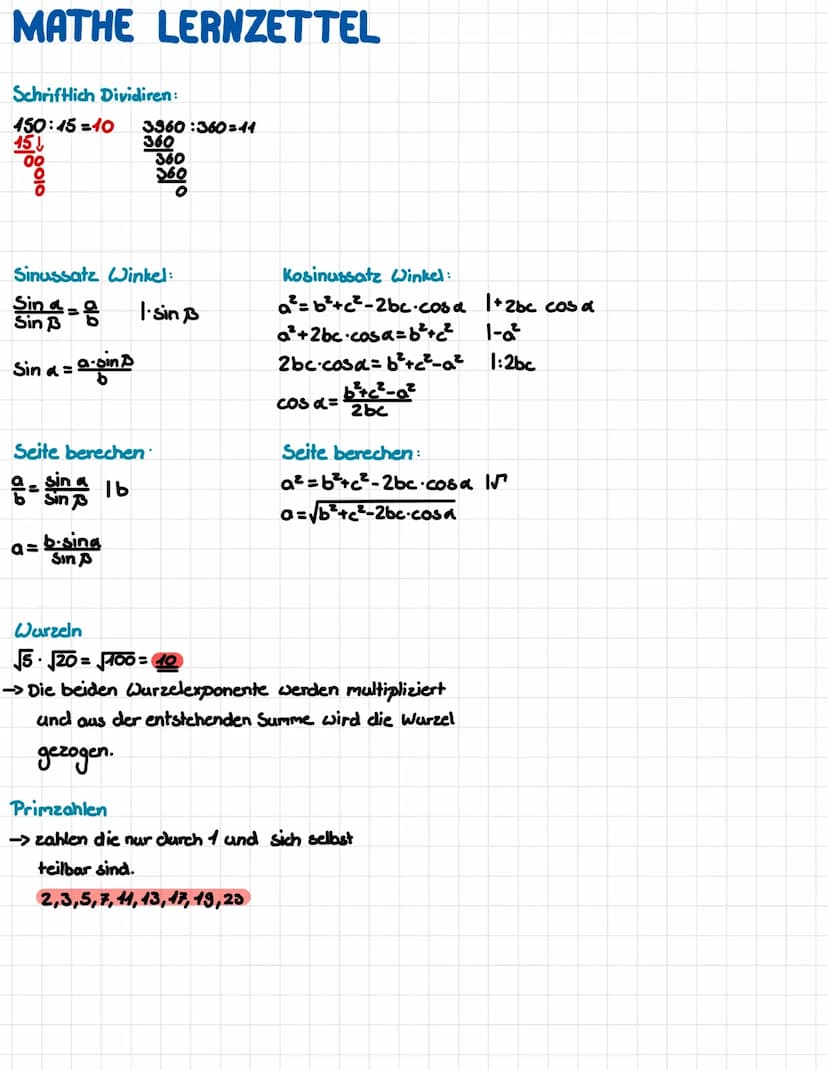 MATHE LERNZETTEL
Schriftlich Dividiren:
150:15=10
15↓
00
0
0
3960:360=11
360
360
360
0
Sinussatz Winkel:
sin α / sin β = a/b |· sin β
sin α = a·sin β / b
Kosinussatz Winkel:
a²=b²+c²-2bc·cos α |+2bc cos α
a²+2bc·cos α=b²+c² |-a²
2bc·cos α=b²+c²-a² |:2bc
cos α= b²+c²-a² / 2bc
Seite berechen:
a/b = sin α / sin β |b
a = b·sin α / sin β
Seite berechen:
a²=b²+c²-2bc·cos α |√
a=√b²+c²-2bc·cos α
Wurzeln
√5 · √20 = √100 = 10
→ Die beiden Wurzelexponente werden multipliziert
und aus der entstehenden Summe wird die Wurzel
gezogen.
Primzahlen
→ zahlen die nur durch 1 und sich selbst
teilbar sind.
2,3,5,7,11,13,17,19,23